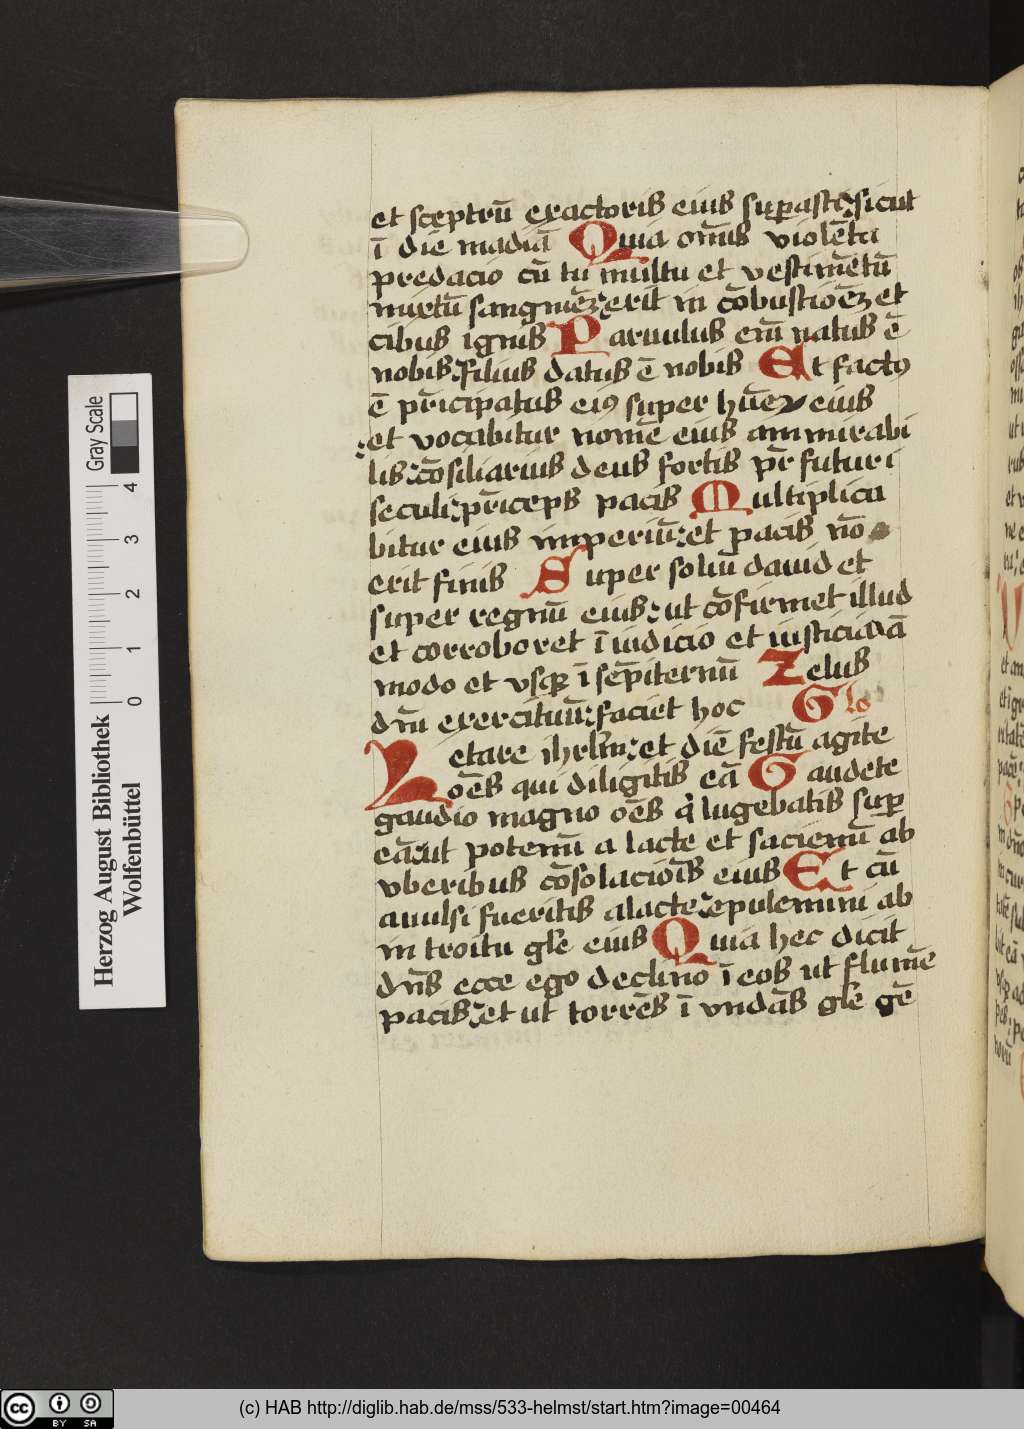 et sceptrū exactoris eius sup̄asti: sicut
ī die madiā Quia om̄is violēta
predacio cū tumultu et vestimētū
mixtū sanguīe: erit in cōbustioēȝ et
cibus ignis Paruulus em̄ natus ē
nobis: filius datus ē nobis Et factꝰ
ē pr̄icipatus eiꝰ super hūeꝝ eius
et vocabitur nomē eius ammirabi
lis: cōsiliarius deus fortis pr̄ futuri
seculi: pr̄iceps pacis Multiplica
bitur eius imperiū: et pacis nō
erit finis Super soliū dauid et
super regnū eius: ut cōfirmet illud
et corroboret ī iudicio et iusticia A
modo et vsqꝫ ī sēpiternū Zelus
dn̄i exercituū: faciet hoc Glo
Letare ihrl̄m: et diē festū agite
oēs qui diligitis eā Gaudete
gaudio magno oēs q̇ lugebatis sup̄
eā: ut potemī a lacte et saciemī ab
vberibus cōsolaciōis eius Et cū
auulsi fueritis a lacte: epulemini ab
in troitu gl̄e eius Quia hec dicit
dn̄s ecce ego declino ī eos ut flumē
pacis: et ut torrēs ī vndās gl̄e gē
Herzog August Bibliothek
Wolfenbüttel
0 1 2 3 4
Gray Scale
cc BY SA
(c) HAB http://diglib.hab.de/mss/533-helmst/start.htm?image=00464